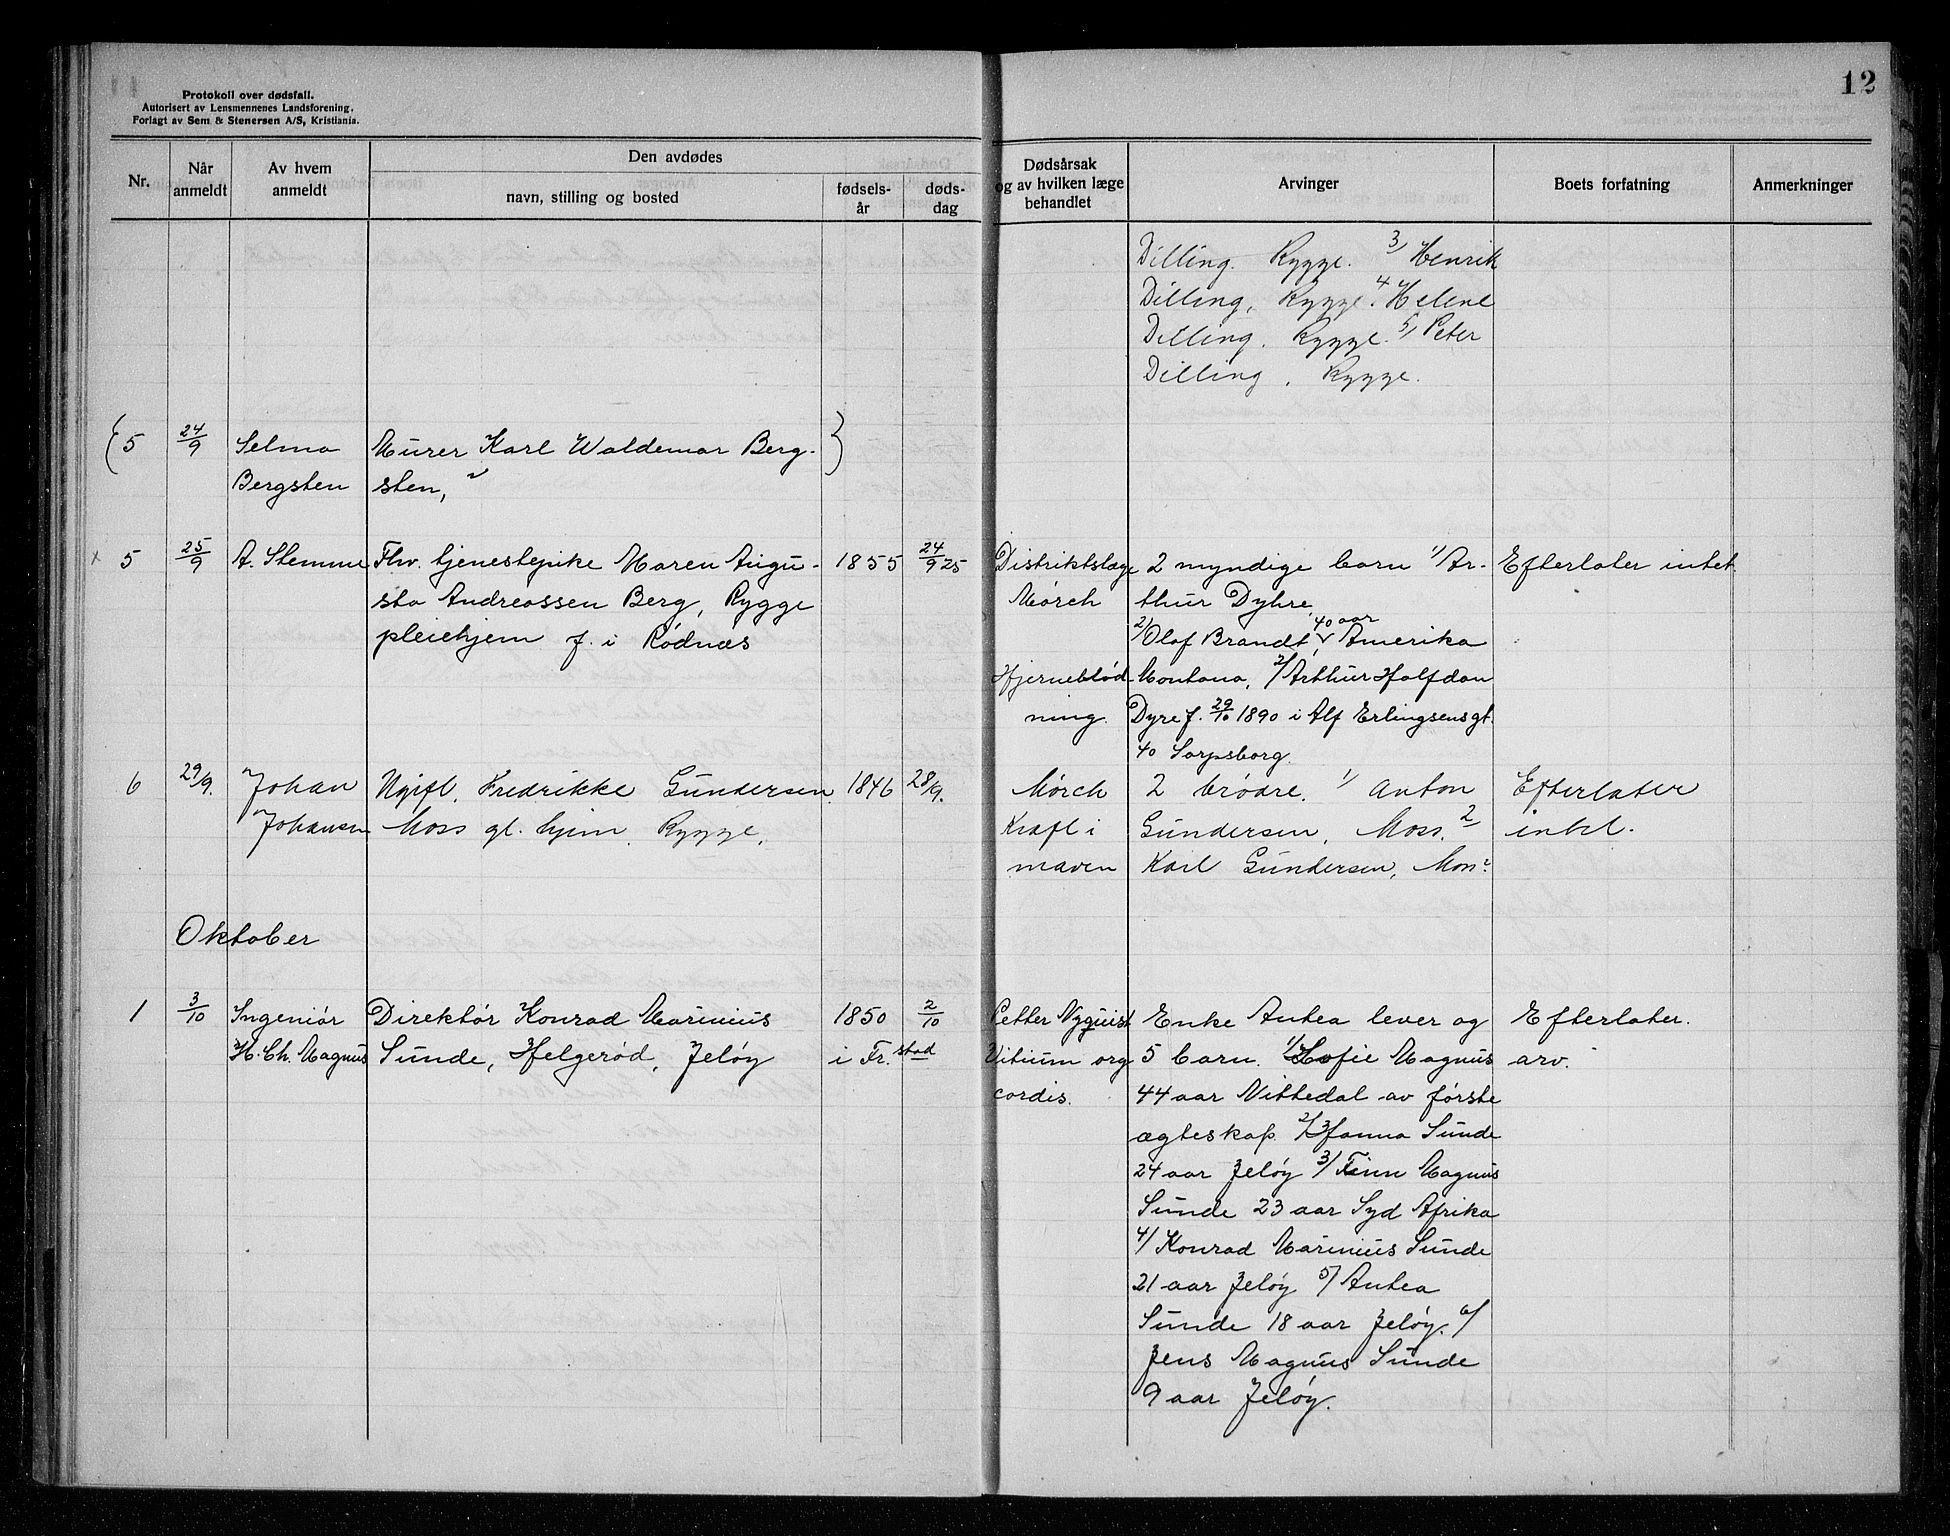 12
Protokoll over dødsfall.
Autorisert av Lensmennenes Landsforening.
Forlagt av Sem & Stenersen A/S, Kristiania.
Nr.
Når anmeldt
Av hvem anmeldt
Den avdødes
navn, stilling og bosted
fødsels-år
døds-dag
Dødsårsak og av hvilken læge behandlet
Arvinger
Boets forfatning
Anmerkninger
Dilling. Rygge. 3/ Henrik
Dilling, Rygge. 4 Helene
Dilling. Rygge. 5/ Peter
Dilling, Rygge.
(5 24/9 Selma Murer Karl Waldemar Berg- )
Bergsten sten,
x 5 25/9 A. Stemme Fhv. tjenestepike Maren Augu- 1855 24/9 25 Distriktslæge 2 myndige barn 1/ Ar- Efterlater intet
sta Andreassen Berg, Rygge Mørch thur Dyhre,
pleiehjem f. i Rødnæs 2/ Olaf Brandt, 40 aar Amerika
Hjerneblød- Montana, 2/ Arthur Halfdan
ning. Dyre f. 29/10 1890 i Alf Erlingsensgt.
40 Sarpsborg.
6 29/9. Johan Ugift. Fredrikke Gundersen. 1846 28/9. Mørch 2 brødre. 1/ Anton Efterlater
Johansen Moss gl. hjem. Rygge. Kræft i Gundersen, Moss. 2 intet.
maven Karl Gundersen, Moss
Oktober
1 3/10 Ingeniør Direktør Konrad Marinius 1850 2/10 Petter Nyquist Enke Antea lever og Efterlater.
H. Ch. Magnus Sunde, Helgerød, Jeløy i Fr. stad Vitium org 5 barn. 1/ Sofie Magnus arv.
cordis. 44 aar Nittedal av første
ægteskap. 2/ Hanna Sunde
24 aar Jeløy 3/ Finn Magnus
Sunde 23 aar Syd Afrika
4/ Konrad Marinius Sunde
21 aar Jeløy 5/ Antea
Sunde 18 aar Jeløy. 6/
Jens Magnus Sunde
9 aar Jeløy.